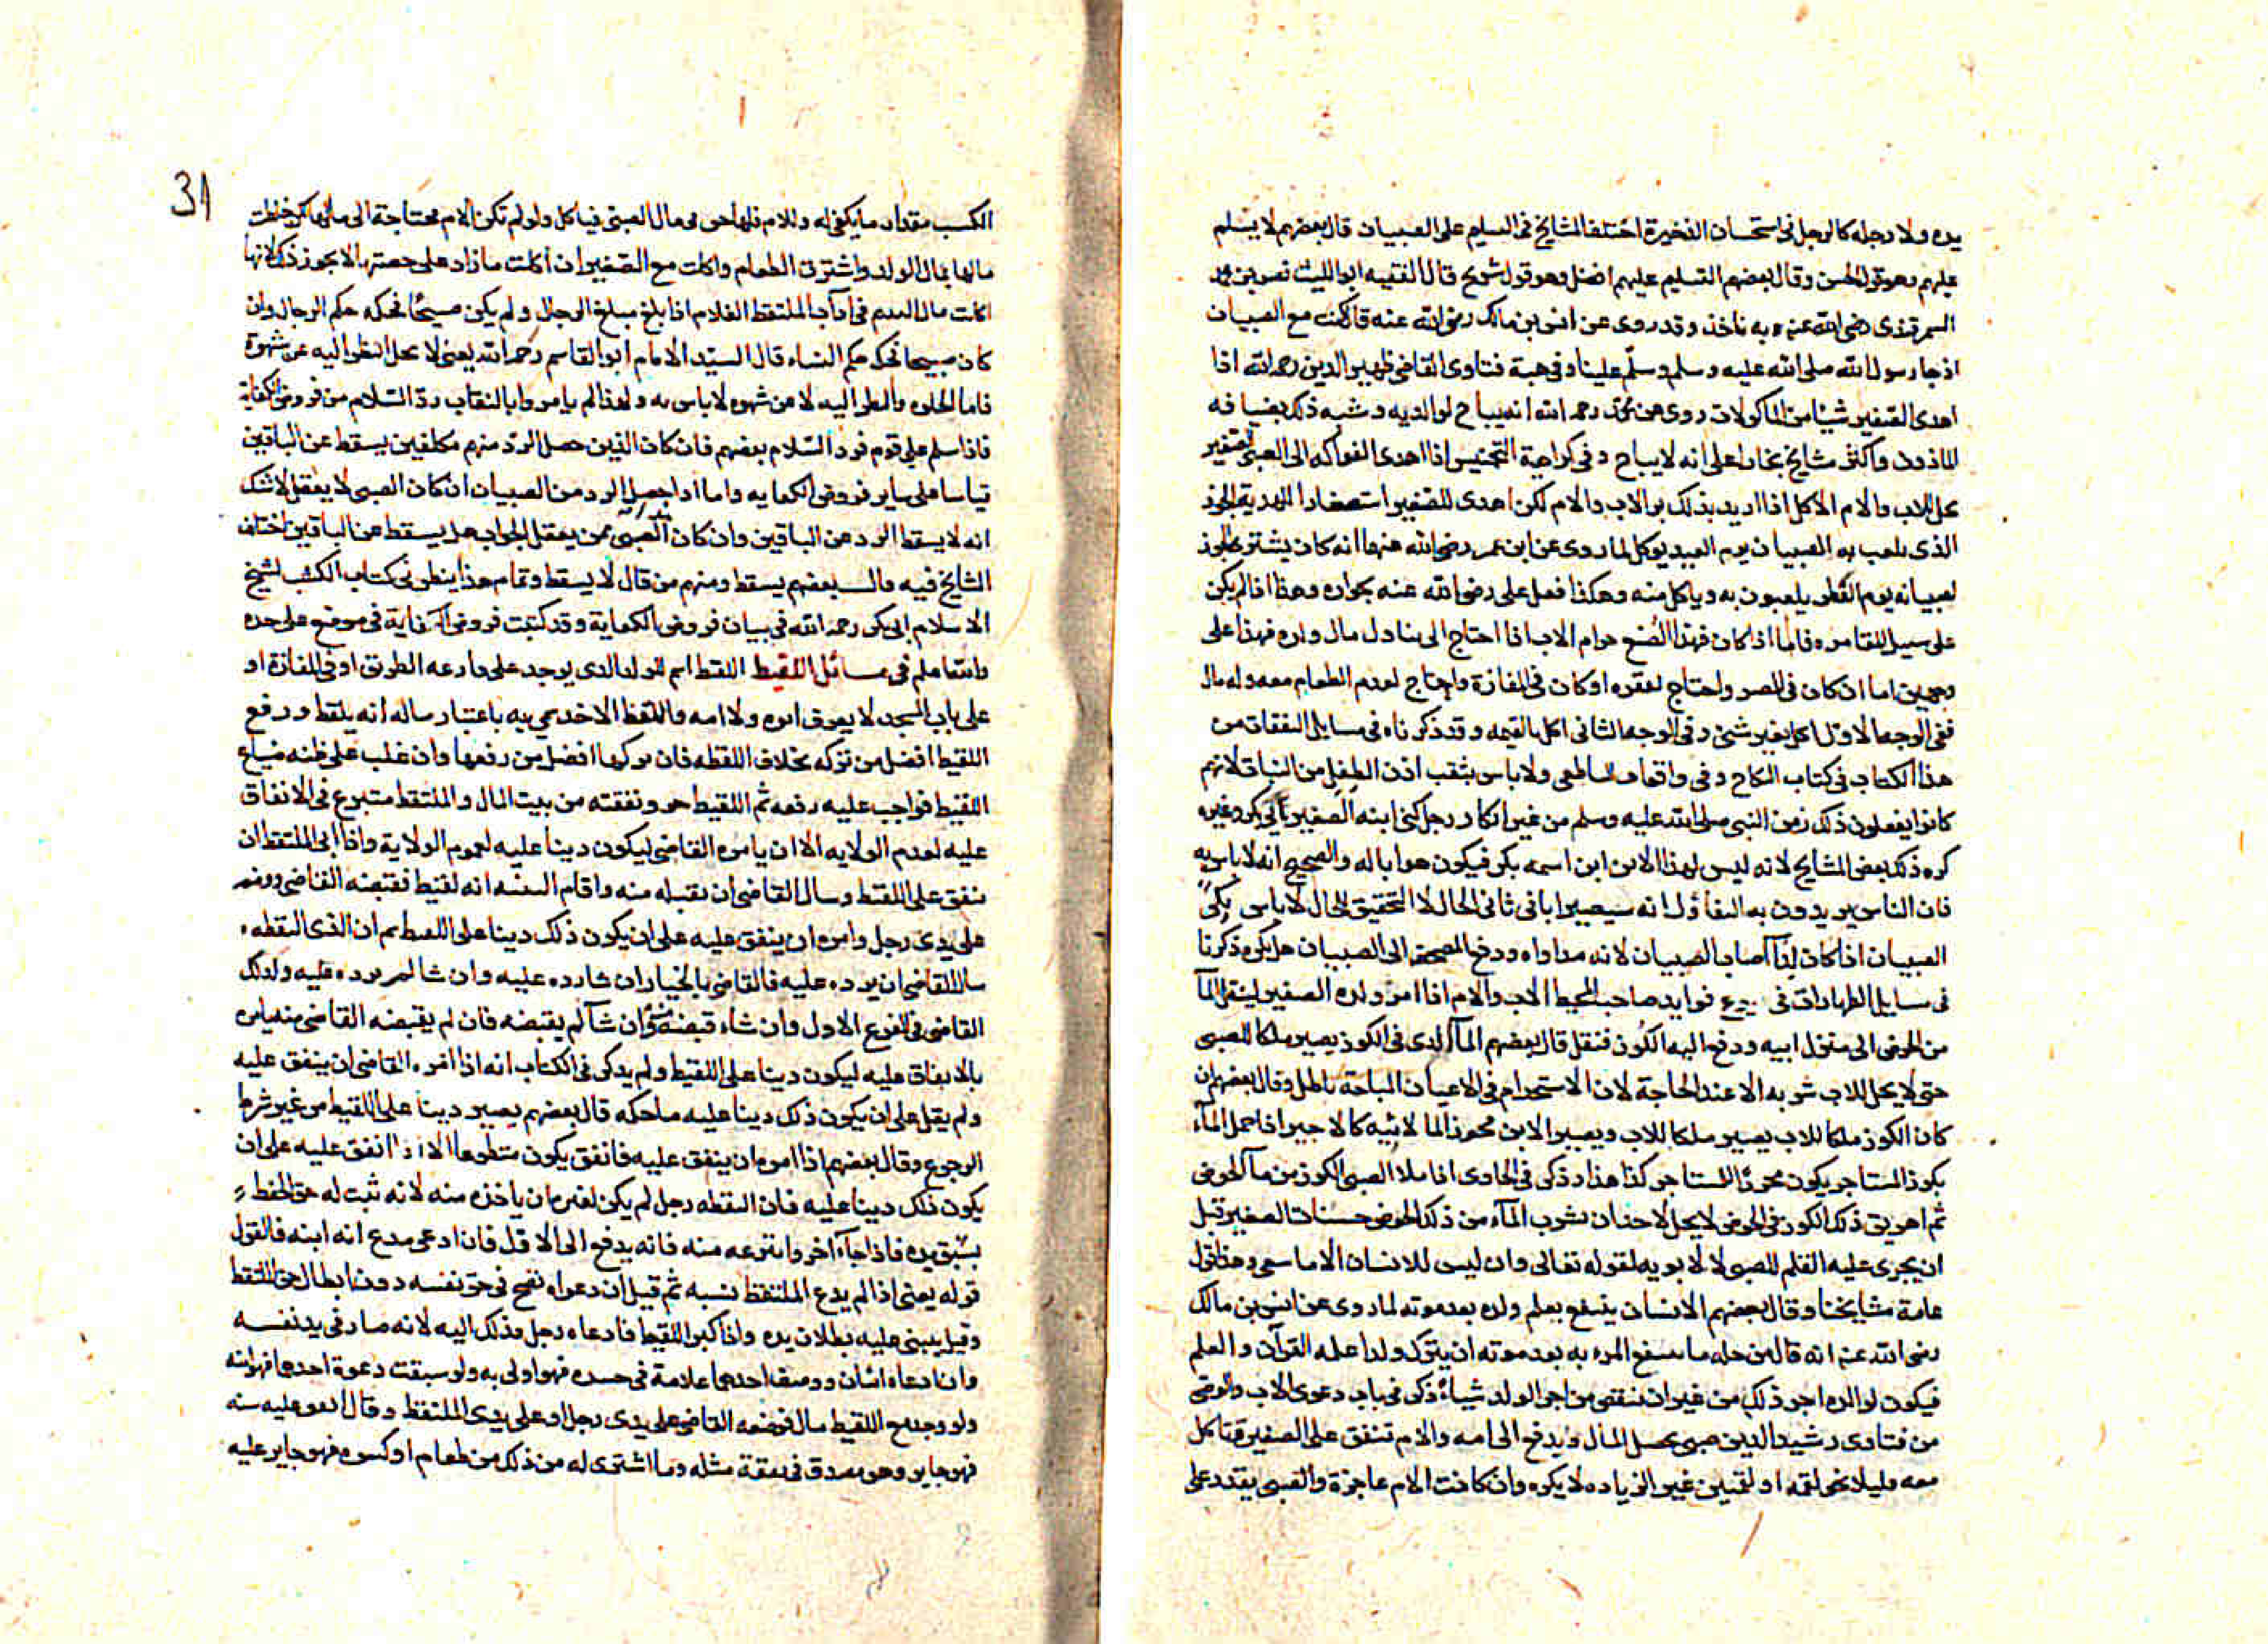 يده ولا رجله كالرجل في استحسان الذخيرة اختلف المشايخ في التسليم على الصبيان قال بعضهم لا يسلم
عليهم وهو قول الحسن وقال بعضهم التسليم عليهم افضل وهو قول شريح قال الفقيه ابو الليث نصر بن محمد
السمرقندي رضي الله عنه وبه ناخذ وقد روى عن انس بن مالك رضي الله عنه قال كنت مع الصبيان
اذ جا رسول الله صلى الله عليه وسلم وسلم علينا وفي هبة فتاوى القاضي ظهير الدين رحمه الله اذا
اهدى الصغير شيئا من الماكولات روى عن محمد رحمه الله انه يباح لوالديه وشبه ذلك بضيافه
الماذون واكثر مشايخ بخارا على انه لا يباح وفي كراهية التجنيس اذا اهدى الفواكه الى الصبي الصغير
يحل للاب والام الاكل اذا اريد بذلك بر الاب والام لكن اهدى للصغير استصغارا للهدية الجوز
الذي يلعب به الصبيان يوم العيد يوكل لما روى عن ابن عمر رضي الله عنهما انه كان يشتري الجوز
لصبيانه يوم الفطر يلعبون به وياكل منه وهكذا فعل علي رضي الله عنه بجواره وهذا اذا لم يكن
على سبيل المقامره فاما اذا كان فهذا الصنع حرام الاب اذا احتاج الى تناول مال ولده فهذا على
وجهين اما ان كان في المصر واحتاج لفقره او كان في المفازة واحتاج لعدم الطعام معه وله مال
ففي الوجه الاول اكل بغير شئ وفي الوجه الثاني اكل بالقيمه وقد ذكرناه في مسايل النفقات من
هذا الكتاب في كتاب النكاح وفي واقعات الناطفي ولا باس بثقب اذن الطفل من البنات لانهم
كانوا يفعلون ذلك زمن النبي صلى الله عليه وسلم من غير انكار رجل كنى ابنه الصغير بابي بكر وغيره
كره ذلك بعض المشايخ لانه ليس لهذا الابن ابن اسمه بكر فيكون هو ابا له والصحيح انه لا باس به
فان الناس يريدون به التفاؤل انه سيصير ابا في ثاني الحال لا التحقيق للحال لا باس بكي
الصبيان اذا كان لداء اصاب الصبيان لانه مداواه ودفع المصحف الى الصبيان هل يكره ذكرنا
في مسايل الطهارات في فوايد صاحب المحيط الاب والام اذا امر ولده الصغير لينقل الماء
من الحوض الى منزل ابيه ودفع اليه الكوز فنقل قال بعضهم الماء الذي في الكوز يصير ملكا للصبي
حتى لا يحل للاب شربه الا عند الحاجة لان الاستخدام في الاعيان المباحة باطل وقال بعضهم ان
كان الكوز ملكا للاب يصير ملكا للاب ويصير الابن محرزا لما لابيه كالاجير اذا حمل الماء
بكوز المستاجر يكون محرزا للمستاجر كذا هذا وذكر في الحاوى اذا ملا الصبي الكوز من ماء الحوض
ثم اهريق ذلك الكوز في الحوض لا يحل لاحد ان يشرب الماء من ذلك الحوض حسنات الصغير قبل
ان يجرى عليه القلم للصبي لا لابويه لقوله تعالى وان ليس للانسان الا ما سعى وهذا قول
عامة مشايخنا وقال بعضهم الانسان ينتفع بعلم ولده بعد موته لما روى عن انس بن مالك
رضي الله عنه انه قال من جله ما ينتفع المرء به بعد موته ان يترك ولدا علمه القرآن والعلم
فيكون لوالده اجر ذلك من غير ان ينقص من اجر الولد شياء ذكر في باب دعوى الاب والوصي
من فتاوى رشيد الدين صبي يحصل المال ويدفع الى امه والام تنفق على الصغير فتاكل
معه قليلا نحو لقمه او لقمتين غير الزياده لا يكره وان كانت الام عاجزة والصبي يقدر على
31
الكسب مقدار ما يكفي له وللام فلها حق في مال الصبي فياكل ولو لم تكن الام محتاجة الى مالها لكن خلطت
مالها بمال الولد واشترت الطعام واكلت مع الصغير ان اكلت ما زاد على حصتها لا يجوز ذلك لانها
اكلت مال اليتيم في آداب الملتقط الغلام اذا بلغ مبلغ الرجال ولم يكن صبيحا فحكمه حكم الرجال وان
كان صبيحا فحكمه حكم النساء قال السيد الامام ابو القاسم رحمه الله يعني لا يحل النظر اليه عن شهوة
فاما الخلوه والنظر اليه لا عن شهوه لا باس به ولهذا لم يامروا بالنقاب ردّ السّلام من فروض الكفاية
فاذا سلم على قوم فرد السّلام بعضهم فان كان الذين حصل الردّ منهم مكلفين يسقط عن الباقين
قياسا على ساير فروض الكفايه واما اذا حصل الرد من الصبيان ان كان الصبي لا يعقل لا شك
انه لا يسقط الرد عن الباقين وان كان هذا الصبي ممن يعقل الجواب هل يسقط عن الباقين اختلف
المشايخ فيه قال بعضهم يسقط ومنهم من قال لا يسقط وتمام هذا ينظر في كتاب الكسب لشيخ
الاسلام ابي بكر رحمه الله في بيان فروض الكفاية وقد كتبت فروض الكفاية في موضع على حده
والله اعلم في مسائل اللقيط اللقيط اسم للولد الذي يوجد على قارعه الطريق او في المفازة او
على باب المسجد لا يعرف ابوه ولا امه واللقط الاخذ سمي به باعتبار ماله انه يلقط ورفع
اللقيط افضل من تركه بخلاف اللقطه فان تركها افضل من رفعها وان غلب على ظنه ضياع
اللقيط فواجب عليه رفعه ثم اللقيط حر ونفقته من بيت المال والملتقط متبرع في الانفاق
عليه لعدم الولايه الا ان يامره القاضي ليكون دينا عليه لعموم الولاية واذا ابى الملتقط ان
ينفق على اللقيط وسال القاضي ان يقبله منه واقام البينه انه لقيط فقبضه القاضي ووضعه
على يدى رجل وامره ان ينفق عليه على ان يكون ذلك دينا على اللقيط ثم ان الذي التقطه
سال القاضي ان يرده عليه فالقاضي بالخيار ان شا رده عليه وان شا لم يرده عليه ولذلك
القاضي في الفرع الاول وان شاء قبضه منه وان شآ لم يقبضه فان لم يقبضه القاضي منه يامره
بالانفاق عليه ليكون دينا على اللقيط ولم يذكر في الكتاب انه اذا امره القاضي ان ينفق عليه
ولم يقل على ان يكون ذلك دينا عليه ما حكمه قال بعضهم يصير دينا على اللقيط من غير شرط
الرجوع وقال بعضهم اذا امره ان ينفق عليه فانفق يكون متطوعا الا اذا انفق عليه على ان
يكون ذلك دينا عليه فان التقطه رجل لم يكن لغيره ان ياخذه منه لانه ثبت له حق الحفظ
بسبق يده فاذا جآء آخر وانتزعه منه فانه يدفع الى الاول فان ادعى مدع انه ابنه فالقول
قوله يعني اذا لم يدع الملتقط نسبه ثم قيل ان دعواه تصح في حق نفسه دون ابطال حق الملتقط
وقيل يبتنى عليه بطلان يده واذا كبر اللقيط فادعاه رجل فذلك اليه لانه صار في يد نفسه
وان ادعاه اثنان ووصف احدهما علامة في جسده فهو اولى به ولو سبقت دعوة احدهما فهو ابنه
ولو وجد مع اللقيط مال فوضعه القاضي على يدى رجل او على يدى الملتقط وقال انفق عليه منه
فهو جايز وهو مصدق في نفقة مثله وما اشترى له من ذلك من طعام او كسوه فهو جايز عليه